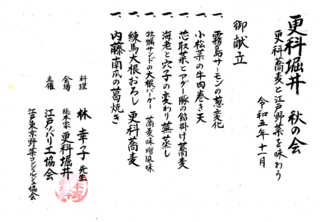 更科堀井 秋の会
更科蕎麦と江戸野菜を味わう
令和五年十一月
御献立
一、霧島サーモンの葱変化
一、小松菜の牛肉巻き天
一、芯取菜とアグー豚の餡掛け蕎麦
一、海老と穴子の変わり蕪蒸し
一、牡蠣サンドの大根バーガー 蕎麦味噌風味
一、練馬大根おろし 更科蕎麦
一、内藤南瓜の葛焼き
料理 林 幸子 先生
会場 総本家 更科堀井
主催 江戸ソバリエ協会
江戸東京野菜コンシェルジュ協会